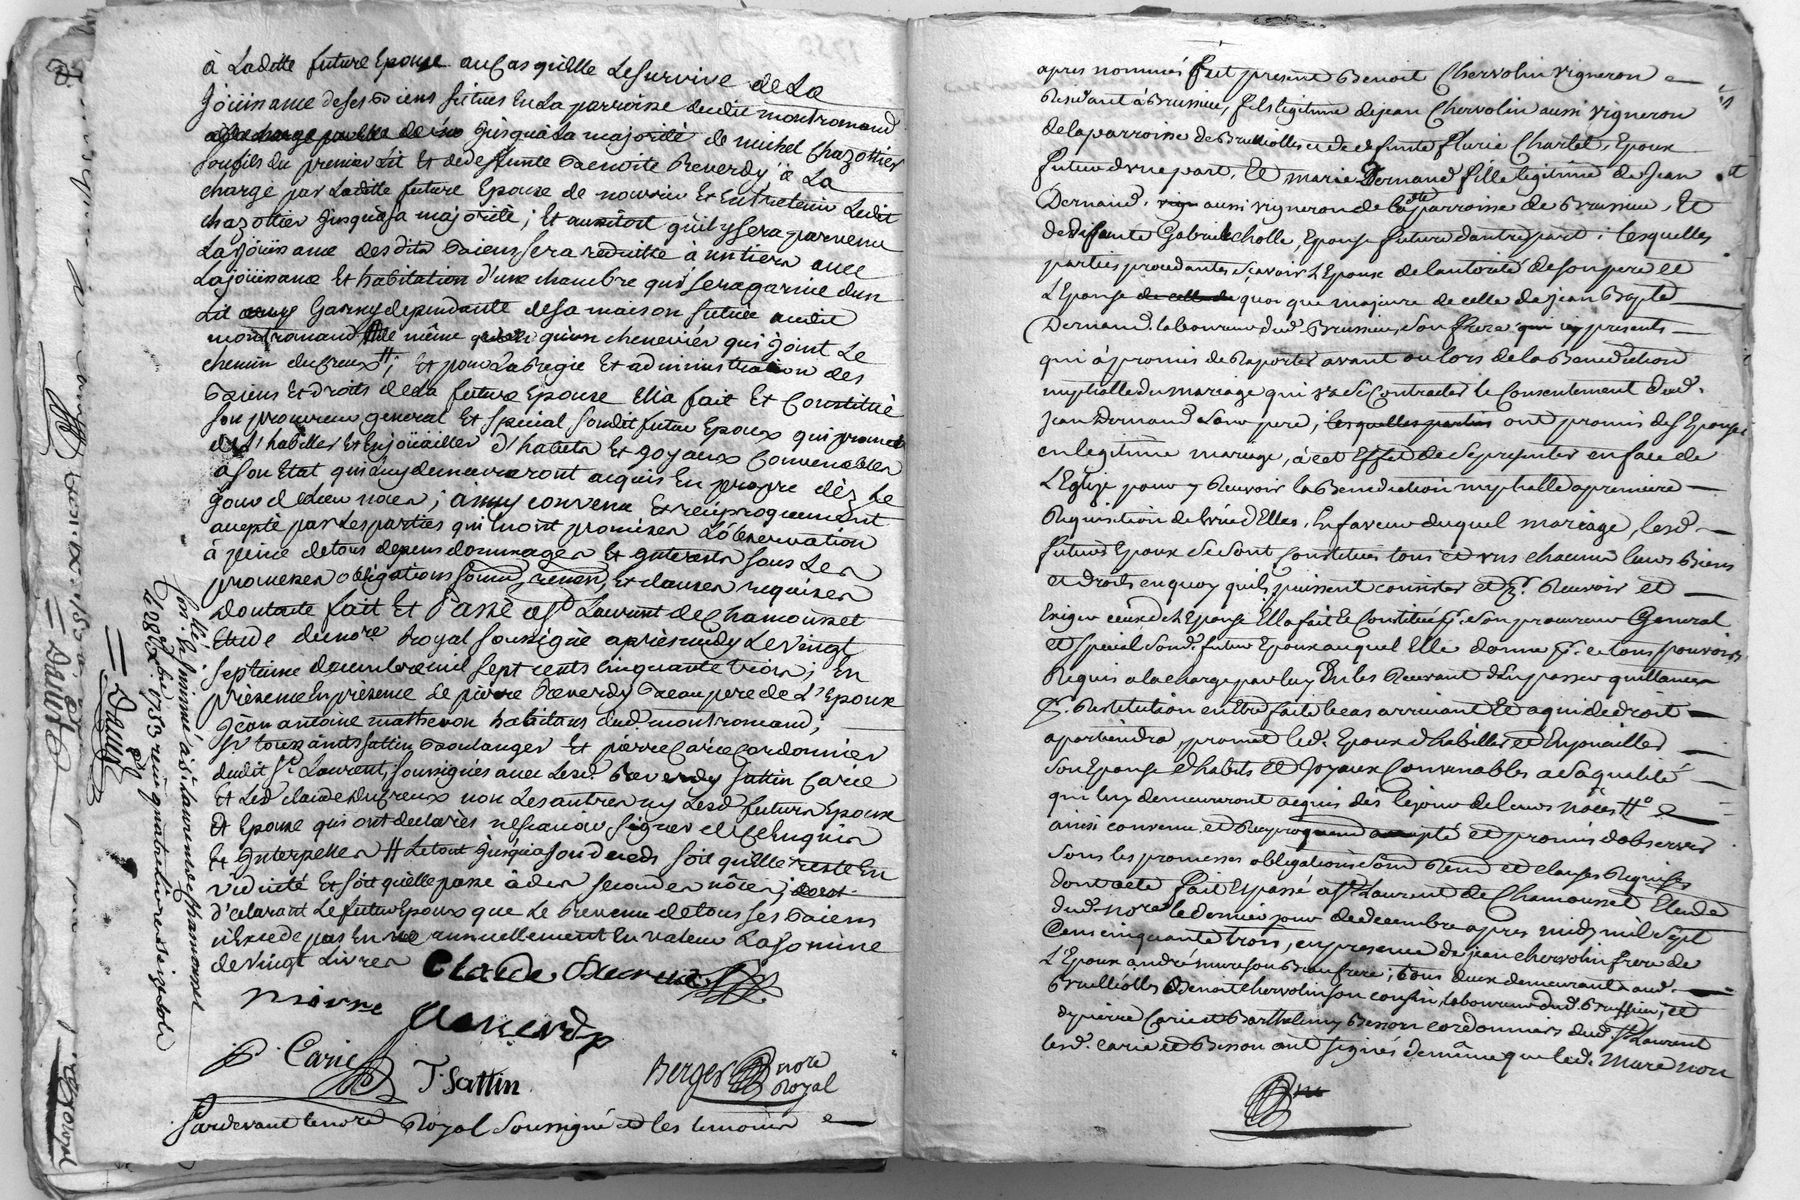 à Ladette future Epouse au Cas qu'Elle Le survive de La
Joüissance de ses Biens situés En La parroisse dudit montromand
jusqu'à La majorité de michel Chazottier
son fils du premier Lit Et de deffunte Benoite Reverdy à La
charge par Laditte future Epouse de nourrir Et Entretenir Ledit
chazottier jusqu'à sa majorité ; Et aussitost qu'il y sera parvenu
La joüissance desdits Biens sera reduitte à un tiers avec
La joüissance Et habitation d'une chambre qui sera garnie d'un
Lit garny dependante de sa maison située audit
montromand de même qu'un chenevier qui joint Le
chemin du Creux # ; Et pour La regie Et administration des
Biens Et droits de La future Epouse Ella fait Et Constitué
son procureur general Et special sondit futur Epoux qui promet
de L'habiller Et Enjoüailler d'habits Et joyaux Convenables
à son Etat qui Luy demeureront acquis En propre dèz Le
jour de Leur noces ; ainsy convenu Et reciproquement
accepté par Les parties qui En ont promises L'observation
à peine de tous depens dommages Et Interests sous Les
promesses obligations soum. renon. Et clauses requises
dont acte fait Et Passé à St Laurent de Chamousset
Etude du nore Royal soussigné apres midy Le vingt
septieme decembre mil sept cents cinquante trois ; En
presence En presence de pierre Reverdy Beau pere de L'Epoux
jean antoine matheron habitans dud. montromand,
sr toussaints sattin Boulanger Et pierre Carie Cordonnier
dudit St Laurent, soussignés avec Lesd. Reverdy sattin Carie
Et Led. claude Ducreux non Les autres ny Lesd. futurs Epoux
Et Epouse qui ont declarés ne scavoir signer de ce Enquis
Et Interpellés # Le tout jusqu'à son deceds soit qu'Elle reste En
viduité Et soit qu'elle passe à des secondes nôces ;
d'éclarant Le futur Epoux que Le Revenu de tous ses Biens
n'Excede pas En annuellement En valeur La somme
de vingt Livres
Claude Ducreux
mivre
Reverdy
P Carie
T. Sattin
Berger nore
Royal
Pardevant le nore Royal soussigné et les temoins
Collé
Con. Et Insinué à St Laurent de Chamousset
le 1753 reçu quatre livres seize sols
Dauph
apres nommés fut present Benoit Chervolin vigneron
Residant à Brussieu, fils legitime de jean Chervolin aussi vigneron
de la parroisse de Brulliolles et de defunte Flurie Charlet, Epoux
futur d'une part, Et marie Dernand fille legitime de Jean
Dernand, aussi vigneron de ladte parroisse de Brussieu, Et
de defunte Gabrielle cholle, Epouse future d'autre part ; lesquelles
parties procedantes scavoir L'Epoux de l'autorité de son pere et
L'Epouse quoi que majeure de celle de jean Bapte
Dernand laboureur dud. Brussieu, son frere icy presents
qui à promis de Raporter avant ou lors de la Benediction
nuptialle du mariage qui va se Contracter le Consentement dud.
jean Dernand Son pere ; lesquelles parties ont promis de s'Epouser
en legitime mariage, à cet Effet de se presenter en face de
L'Eglize pour y Recevoir la Benediction nuptialle a premiere
Requisition de L'une d'Elles, En faveur duquel mariage, lesd.
futurs Epoux se sont Constitués tous et uns chacuns leurs Biens
et droits en quoy qu'ils puissent consister et pr. Recevoir et
Exiger ceux de L'Epouse Ella fait Et Constitué pr. son procureur General
et special sond. futur Epoux auquel Elle donne pr. ce tous pouvoirs
Requis a la charge par luy En les Recevant d'En passer quittances
pr. Restitution en Etre faite le cas arrivant Et a qui de droit
apartiendra, promet led. Epoux d'habiller et Enjouailler
son Epouse d'habits et Joyaux Convenables a sa qualité
qui luy demeureront acquis dès le jour de leurs nôces #
ainsi convenu et Reciproquement accepté et promis d'observer
sous les promesses obligations soum. Ren. et clauses Requises
dont acte fait Et passé à St Laurent de Chamousset Etude
dud. nore le dernier jour de decembre apres midy mil sept
Cens cinquante trois, en presence de jean Chervolin frere de
L'Epoux andré mure son Beau frere ; tous deux demeurants aud.
Brulliolles Benoit Chervolin son cousin, laboureur dud. Brussieu ; et
de pierre Carie et Barthelemy Besson cordonniers dud. St Laurent
lesd. carie et Besson ont signés de même que led. Mure non